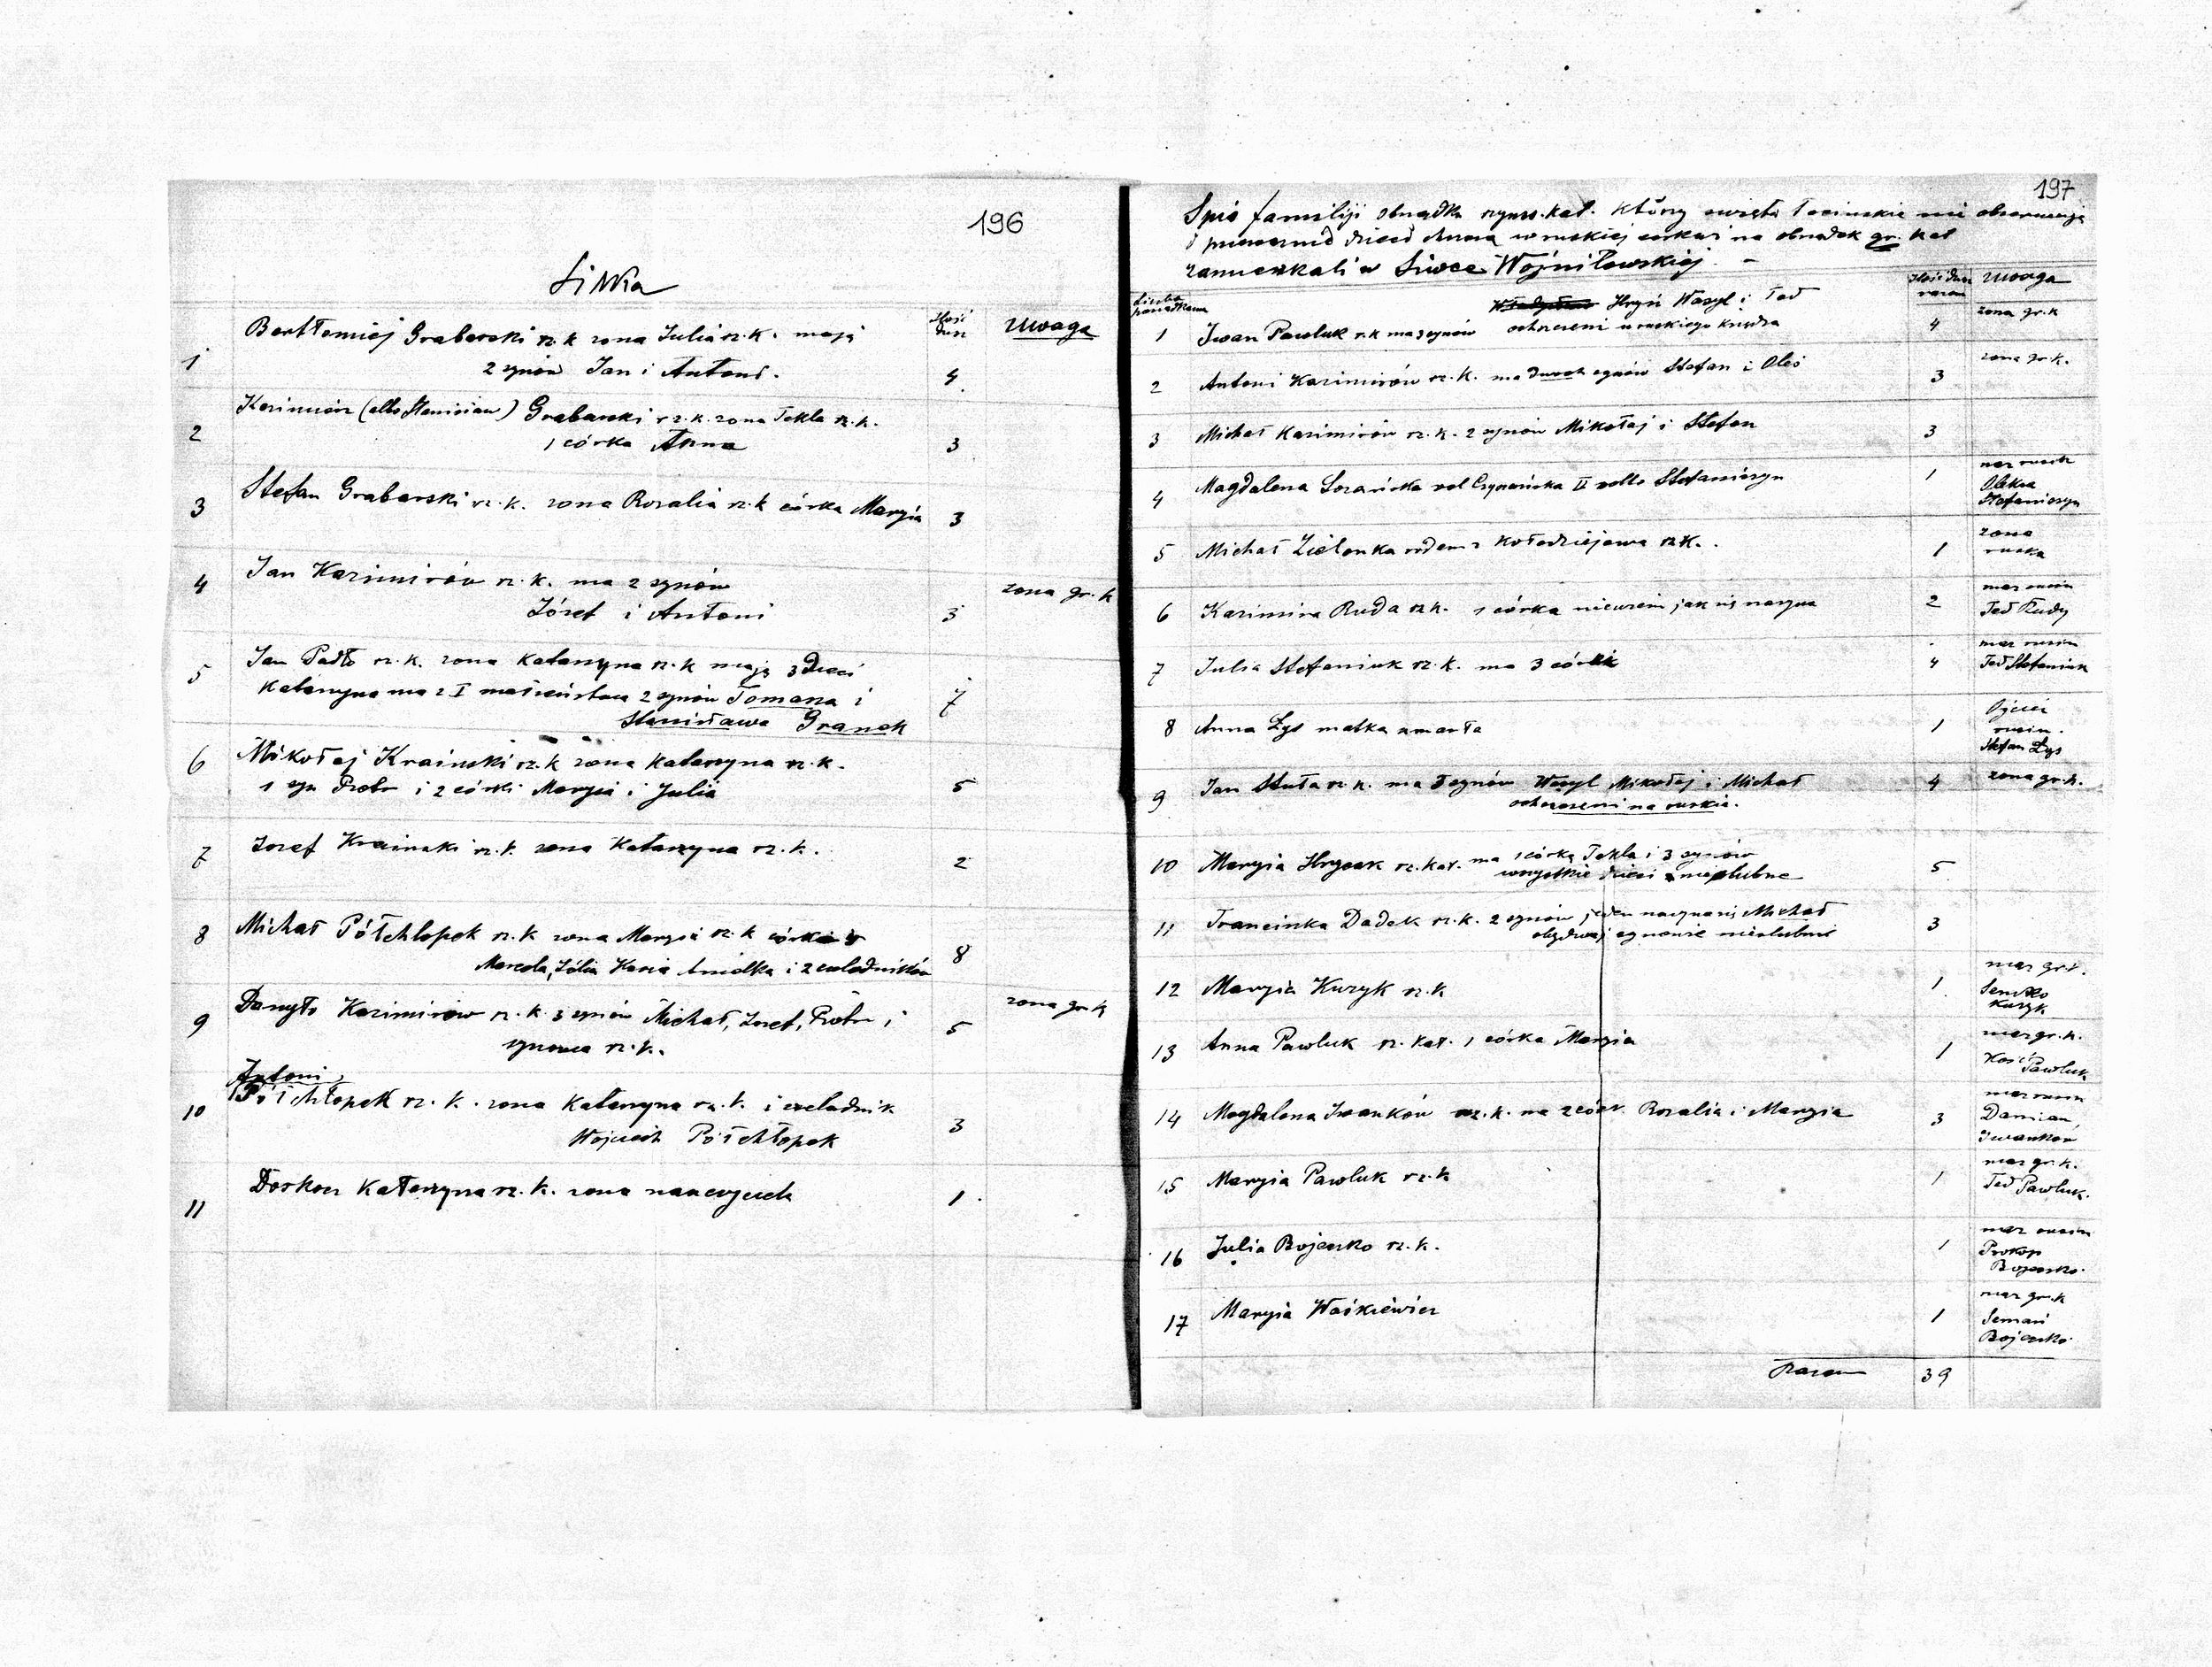 196
Siwka
Ilość dusz Uwaga
1 Bartłomiej Grabarski rz. k żona Julia rz. k. mają
2 synów Jan i Antoni. 4
2 Kazimierz (albo Stanisław) Grabarski rz. k. żona Tekla rz. k.
1 córka Anna 3
3 Stefan Grabarski rz. k. żona Rozalia rz. k córka Maryia 3
4 Jan Kazimirów rz. k. ma 2 synów żona gr. k
Józef i Antoni 3
5 Jan Padło rz. k. żona Katarzyna rz. k mają 3 dzieci
Katarzyna ma z I małżeństwa 2 synów Tomasza i 7
Stanisława Granek
6 Mikołaj Krainski rz. k żona Katarzyna rz. k.
1 syn Piotr i 2 córki Maryia i Julia 5
7 Jozef Krainski rz. k. żona Katarzyna rz. k. 2
8 Michał Półchłopek rz. k żona Maryia rz. k córki 4
Marcela, Zólia Kasia Anielka i 2 czeladników 8
9 Danyło Kazimirów rz. k. 3 synów Michał, Jozef, Piotr i 5 żona gr. k
synowa rz. k.
Antoni
10 Półchłopek rz. k. żona Katarzyna rz. k. i czeladnik
Wojciech Półchłopek 3
11 Katarzyna rz. k. żona 1.
197
Spis familiji obrządku rzyms. kat. który święta łacinskie nie obserwują
i przeważnie dzieci chrzczą w ruskiej cerkwi na obrządek gr. kat
zamieszkali w Siwce Wojniłowskiej. -
Liczba porządkowa Ilość dusz razem Uwaga
Hryń Wasyl i Fed
1 Iwan Pawluk r. k ma synów ochrzceni u ruskiego księdza 4 żona gr. k
2 Antoni Kazimirów rz. k. ma dwoch synów Stefan i Oleś 3 żona gr. k.
3 Michał Kazimirów rz. k. 2 synów Mikołaj i Stefan 3
4 Magdalena vel II voto Stefaniszyn 1 Oleksa Stefaniszyn
5 Michał Zielonka rodem z Kołodziejowa rz. k. 1 żona ruska
6 Kazimira Ruda rz. k. 1 córka niewiem jak się nazywa 2 mąż rusin Fed Rudy
7 Julia Stefaniuk rz. k. ma 3 córki 4 mąż rusin Fed Stefaniuk
8 Anna Łys matka umarła 1 Ojciec rusin. Stefan Łys
9 Jan Stuła rz. k. ma 3 synów Wasyl, Mikołaj i Michał 4 żona gr. k.
ochrzceni na ruskie.
10 Maryia Hrycak rz. kat. ma 1 córkę Tekla i 3 synów
wszystkie dzieci nieślubne 5
11 Francinka Dadek rz. k. 2 synów jeden nazywa się Michał
obydwaj synowie nieślubni 3
12 Maryia Kuzyk rz. k 1 mąż gr. k. Semko Kuzyk
13 Anna Pawluk rz. kat. 1 córka Maryia 1 mąż gr. k. Kość Pawluk
14 Magdalena Iwanków rz. k. ma 2 córk. Rozalia i Maryia 3 mąż rusin Damian Iwanków
15 Maryia Pawluk rz. k 1 mąż gr. k. Fed Pawluk.
16 Julia Bojeczko rz. k. 1 mąż rusin Prokop Bojeczko.
17 Maryia Waśkiewicz 1 mąż gr. k Semań Bojeczko
Razem 39